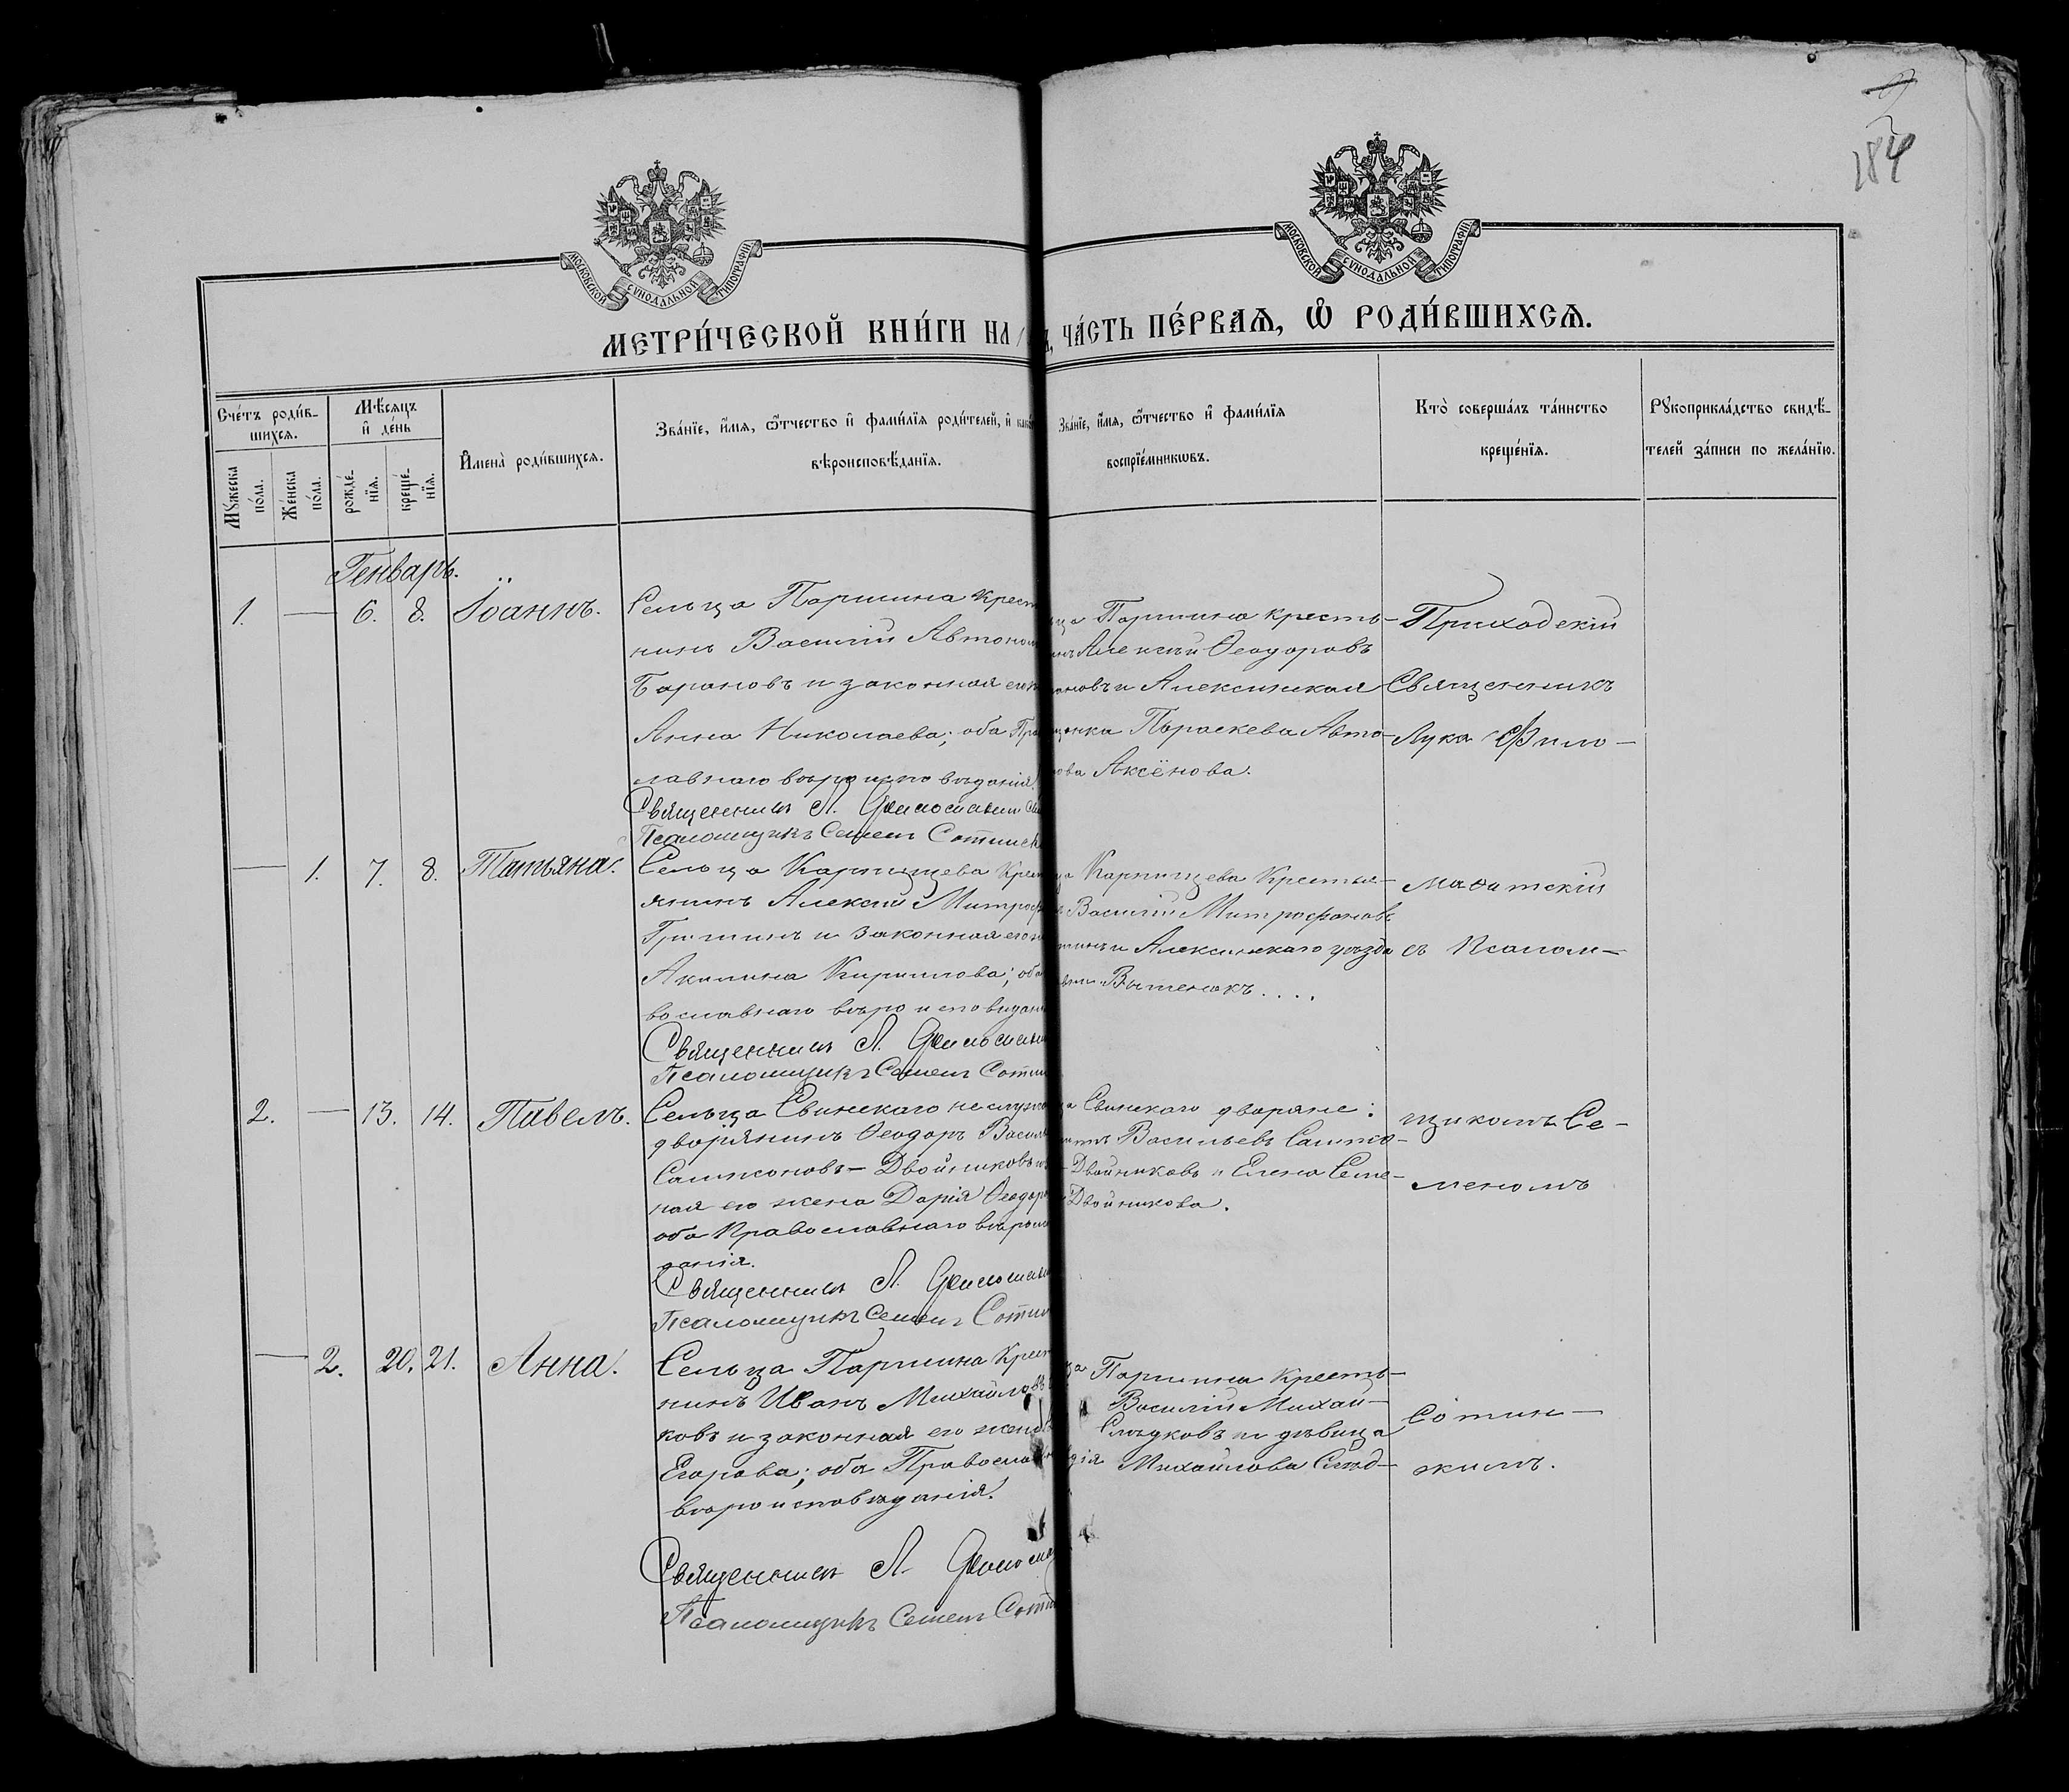 184
МОСКОВСКОЙ СУНОДАЛЬНОЙ ТИПОГРАФІИ
МОСКОВСКОЙ СУНОДАЛЬНОЙ ТИПОГРАФІИ
МЕТРИ́ЧЕСКОЙ КНИ́ГИ НА
ЧА́СТЬ ПЕ́РВАѦ, Ѽ РОДИ́ВШИХСѦ.
Сче́тъ роди́в-
шихсѧ.
Мꙋ́жеска по́ла.
Же́нска по́ла.
Мѣ́сѧцъ
и҆ де́нь
рожде́нїѧ.
креще́нїѧ.
И҆мена̀ роди́вшихсѧ.
Зва́нїе, и҆́мѧ, ѻ҆́тчество и҆ фами́лїѧ роди́телей, и҆
вѣроисповѣ́данїѧ.
Зва́нїе, и҆́мѧ, ѻ҆́тчество и҆ фами́лїѧ
воспрїе́мникѡвъ.
Кто̀ соверша́лъ та́инство
креще́нїѧ.
Рꙋкоприкла́дство свидѣ́-
телей за́писи по жела́нїю.
Генварь.
1. — 6. 8. Іоаннъ.
Сельца Паршина крест
нинъ Василій Автоном
Барановъ и законная его
Анна Николаева; оба Пра
славнаго вѣроисповѣданія.
Священникъ Л.
Псаломщикъ Семенъ Сотник
Паршина кресть-
Алексѣй Ѳеодоровъ
и Алексинская
Параскева Авто-
Аксёнова.
Приходскій
Священникъ
Лука Фило-
— 1. 7. 8. Татьяна.
Сельца Карпищева Крест
янинъ Алексій Митроф
Гришинъ и законная его
Акилина Кириллова; оба
вославнаго вѣроисповѣдан
Священникъ Л.
Псаломщикъ Семенъ Сотни
Карпищева Крестья-
Василій Митрофановъ
и Алексинскаго уѣзда
мафитскій
съ Псалом-
2. — 13. 14. Павелъ.
Сельца Свинскаго неслуж
дворянинъ Ѳеодоръ Васил
Сампсоновъ-Двойниковъ и
ная его жена Дарія Ѳеодор
оба Православнаго вѣроисп
данія.
Священникъ Л.
Псаломщикъ Семенъ Сотни
Свинскаго дворяне:
Васильевъ Сампсо-
-Двойниковъ и Елена Семе-
Двойникова.
щикомъ Се-
меномъ
— 2. 20. 21. Анна.
Сельца Паршина Крест
нинъ Иванъ Михайловъ
ковъ и законная его жена
Егорова; оба Православн
вѣроисповѣданія.
Священникъ Л.
Псаломщикъ Семенъ Сотн
Паршина Кресть-
Василій Михай-
Слѣдковъ и дѣвица
Михайлова Слѣд-
Сотни-